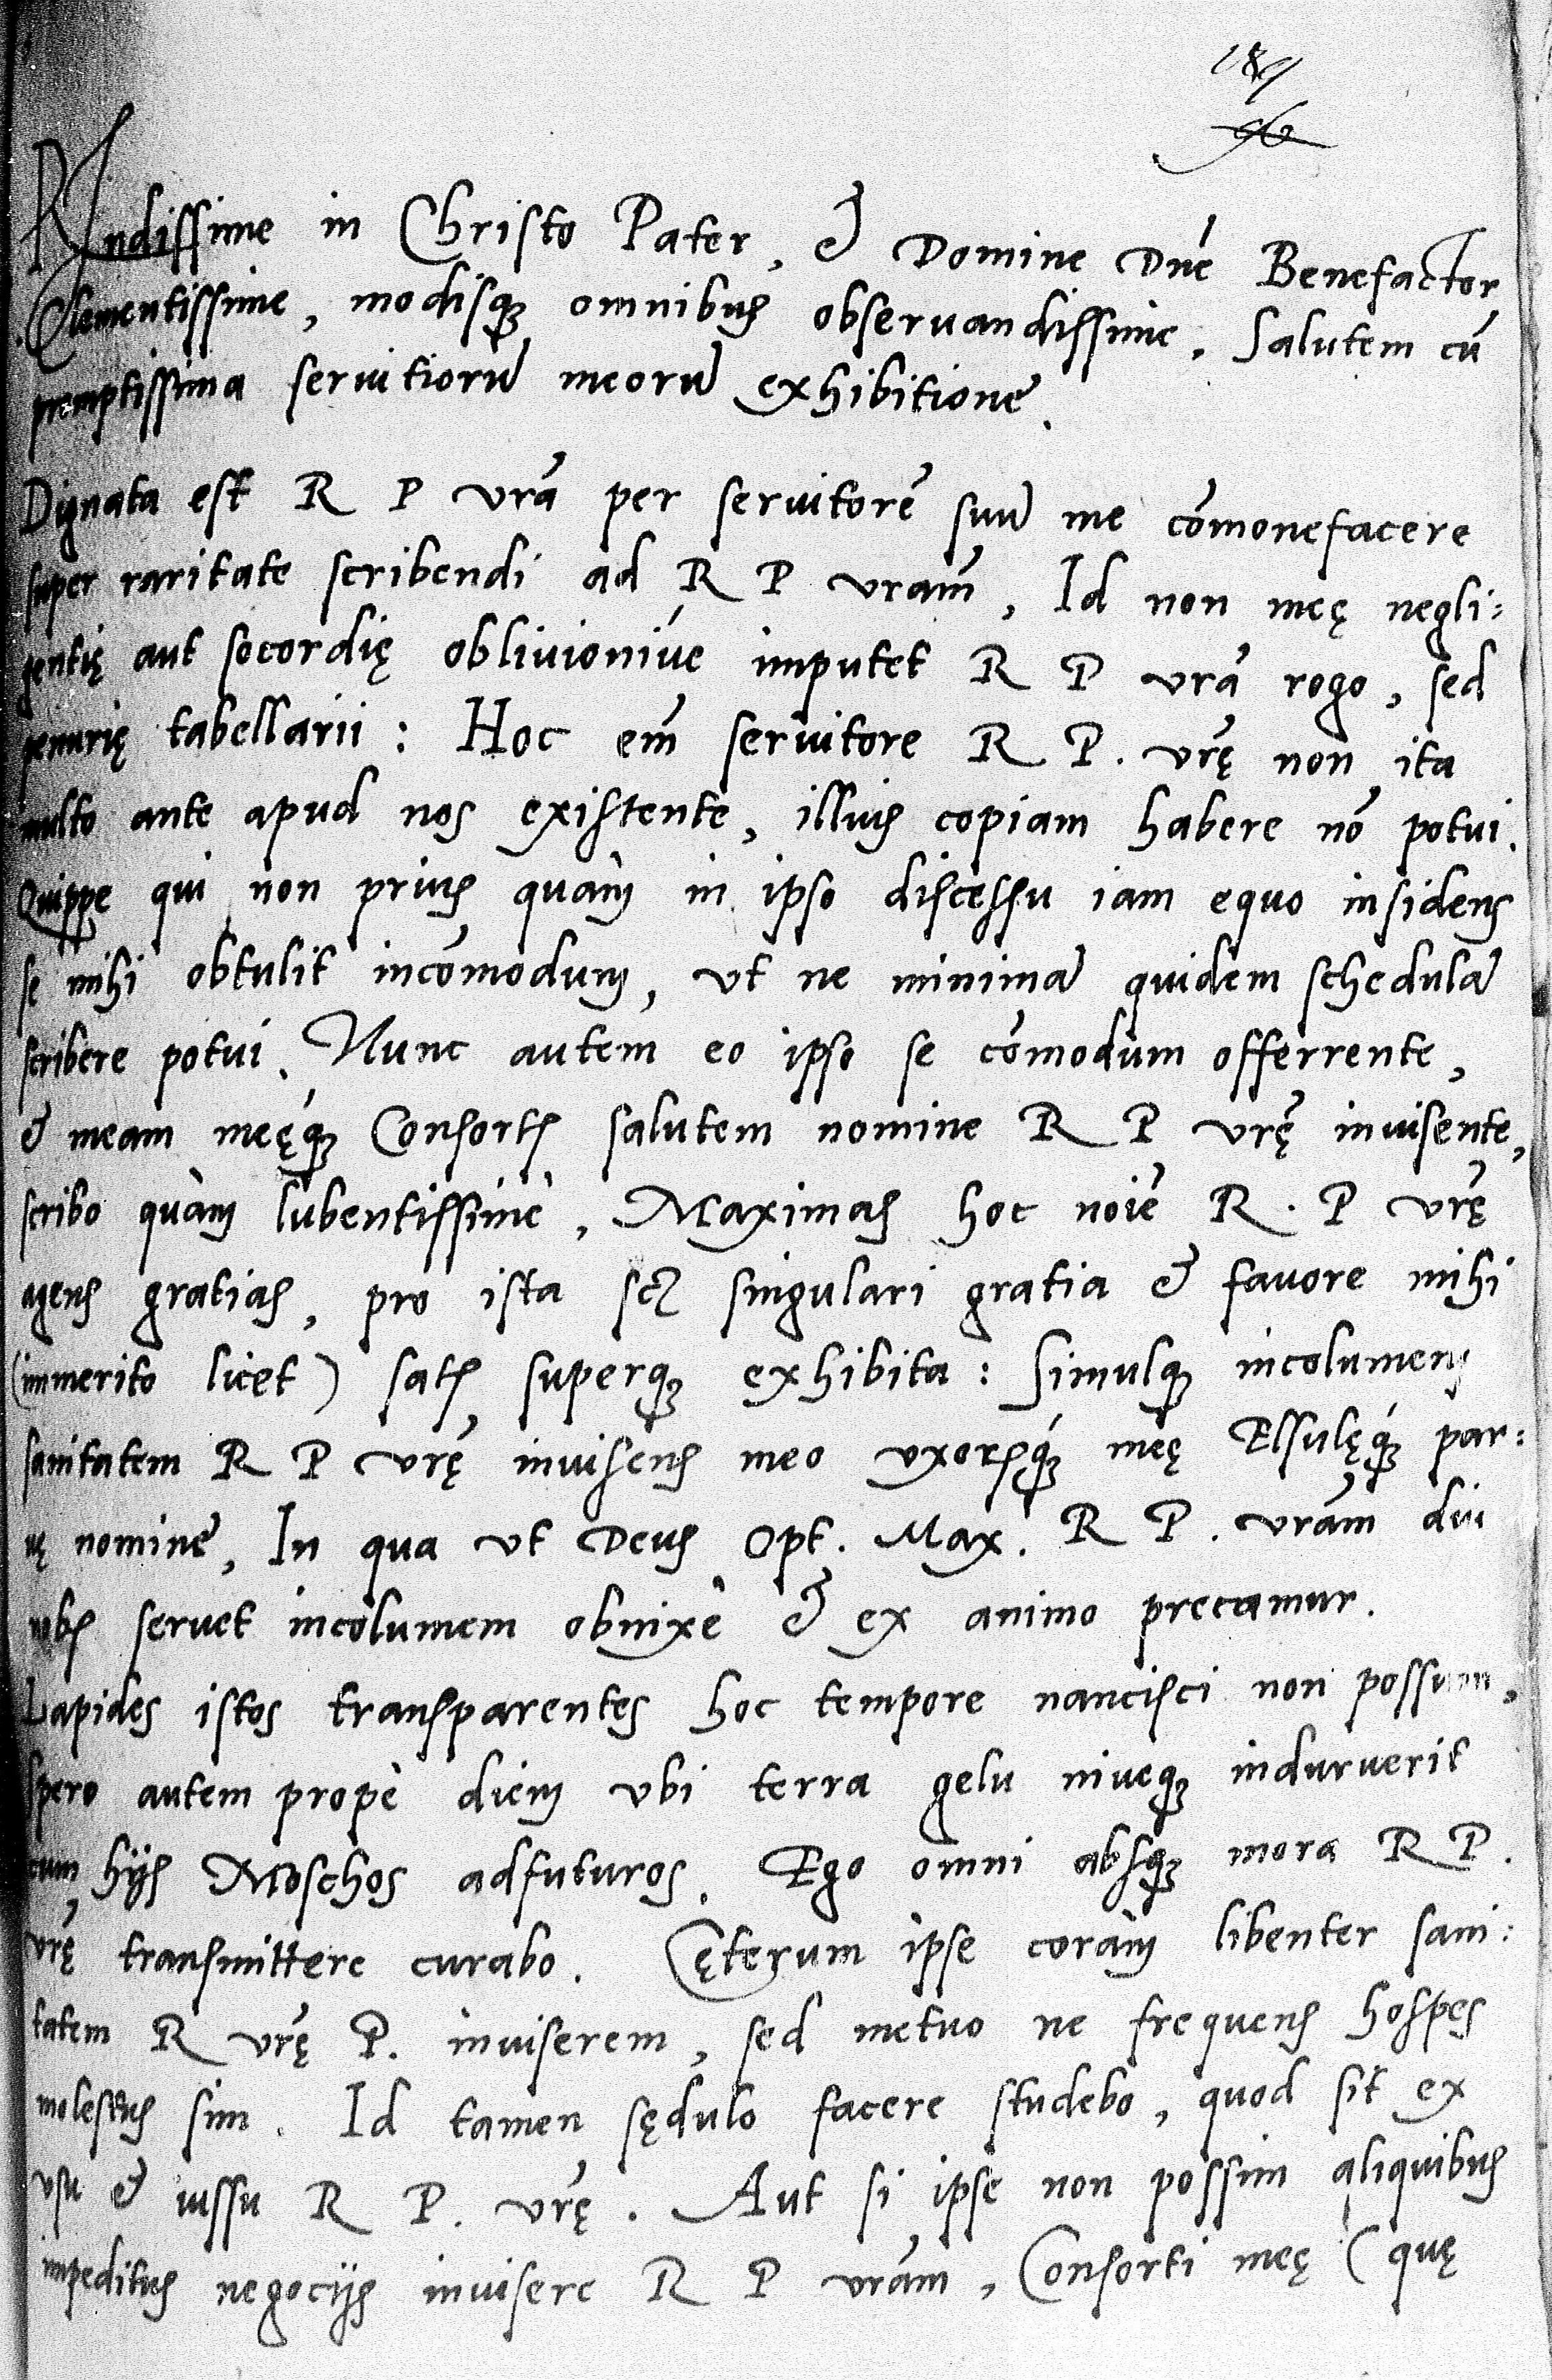 189
96
Rndissime in Christo Pater, & Domine Dne Benefactor
Clementissime, modisq3 omnibus obseruandissime. Salutem cū
promptissima seruitiorū meorū exhibitione.
Dignata est R P vrā per seruitorē suū me cōmonefacere
super raritate scribendi ad R P vram̄, Id non meę negli:
gentię aut socordię obliuioniúe imputet R P vrā rogo, sed
penurię tabellarii : Hoc em̄ seruitore R. P. vrę̄ non ita
multo ante apud nos existente, illius copiam habere nō potui.
Quippe qui non prius quàm in ipso discessu iam equo insidens
se mihi obtulit incōmodum, vt ne minimā quidem schedulā
scribere potui. Nunc autem eo ipso se cōmodùm offerrente,
& meam meęq́3 Consortis salutem nomine R P vrę̄ inuisente,
scribo quàm lubentissimè, Maximas hoc noīe R. P vrę̄
agens gratias, pro ista scz singulari gratia & fauore mihi
(immerito licet) satis superq3 exhibita : Simulq3 incolumem
sanitatem R P vrę̄ inuisens meo vxorisq́3 meę Elsulęq́3 par:
uę nomine, In qua vt Deus Opt. Max. R P. vrām diu
nobis seruet incolumem obnixè & ex animo precamur.
Lapides istos transparentes hoc tempore nancisci non possum,
spero autem propè diem vbi terra gelu niueq3 induruerit
cum hijs Moschos adfuturos. Ego omni absq3 mora R P.
vrę̄ transmittere curabo. Cęterum ipse coràm libenter sani:
tatem R vrę̄ P. inuiserem, sed metuo ne frequens hospes
molestus sim. Id tamen sędulo facere studebo, quod sit ex
vsu & iussu R P. vrę̄. Aut si ipse non possim aliquibus
impeditus negocijs inuisere R P vrām, Consorti meę (quę